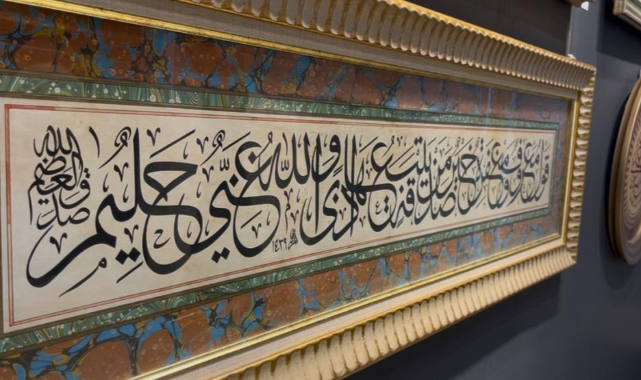 قول معروف ومغفرة خير من صدقة يتبعها أذى والله غني حليم
صدق الله العظيم
١٤٣٩